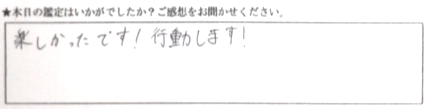 ★本日の鑑定はいかがでしたか？ご感想をお聞かせください。
楽しかったです！行動します！